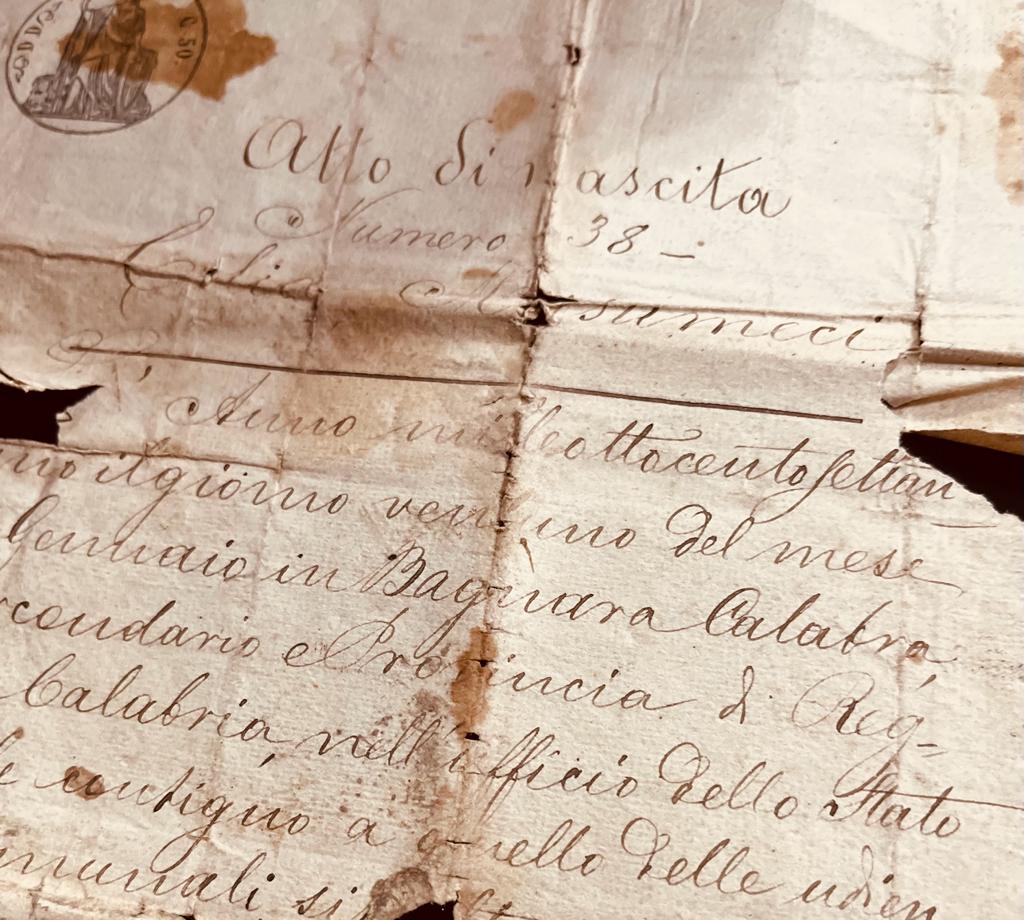 C 50.
Atto di nascita
Numero 38 –
Musumeci
L'Anno milleottocentosettan
no il giorno ventuno del mese
Gennaio in Bagnara Calabra,
rcondario e Provincia di Reg-
Calabria, nell'ufficio dello Stato
le contiguo a quello delle udien
munali si